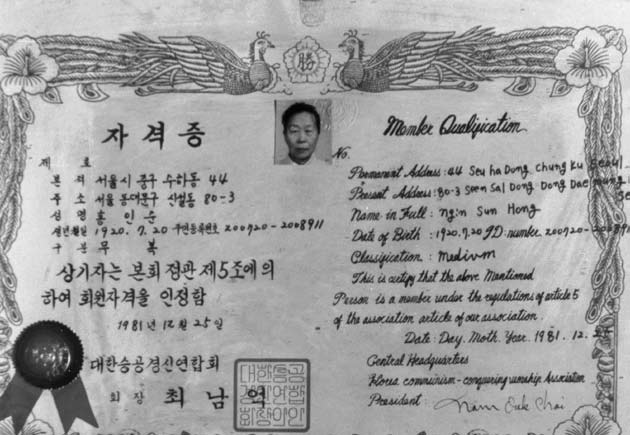 勝
자격증
제 호
본 적 서울시 중구 수하동 44
주 소 서울 동대문구 신설동 80-3
성 명 홍 인 순
생년월일 1920. 7. 20 주민등록번호 200720-2008911
구 분 무 복
상기자는 본회 정관 제5조에의
하여 회원자격을 인정함
1981년 12월 25일
대한승공경신연합회
회 장 최 남 억
Member Qualification
No.
Permanent Address: 44 Seu ha Dong Chung Ku Seoul
Present Address: 80-3 Seon Sal Dong Dong Dae
Name in Full: ngin Sun Hong
Date of Birth: 1920.7.20 ID: number 200720-2008911
Classification: Medium
This is certify that the above Mantioned
Person is a member under the regulations of article 5
of the association article of our association.
Date: Day. Moth. Year. 1981. 12. 25
Central Headquarters
Korea communism-conquering worship Association
President Nam Euk Choi